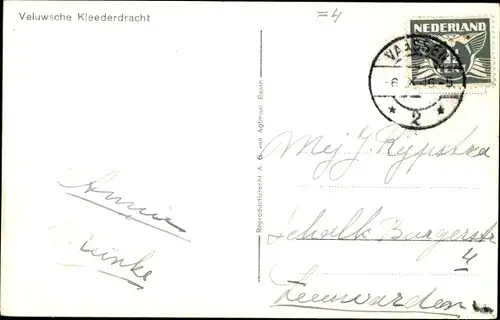 Veluwsche Kleederdracht
=4
NEDERLAND
VAASSEN
-6 X
* 2 *
Reproductierecht A. G. van Agtmaal, Baarn
Mej J. Rypstra
Schalk Burgerstr
4
Leeuwarden
Annie